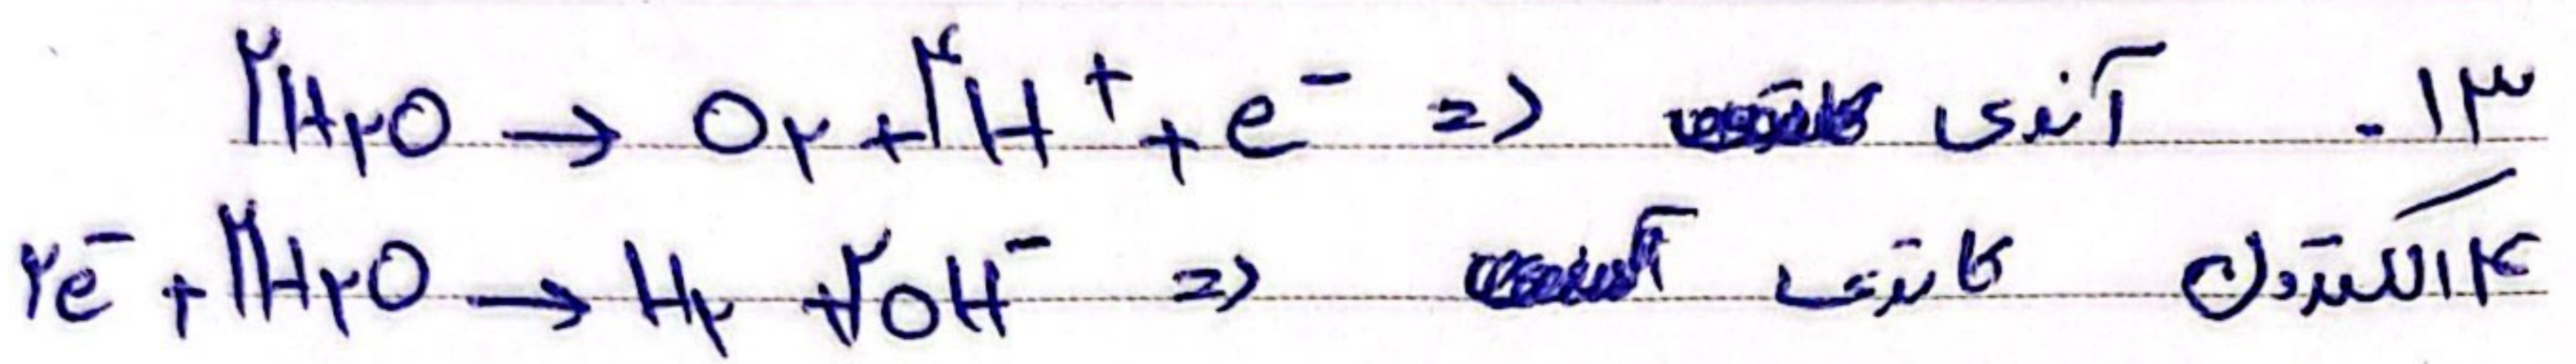 ۱۳- آندی => ۲H۲O → O۲ + ۴H⁺ + e⁻
۴ الکترون کاتدی => ۲e⁻ + ۲H۲O → H۲ + ۲OH⁻